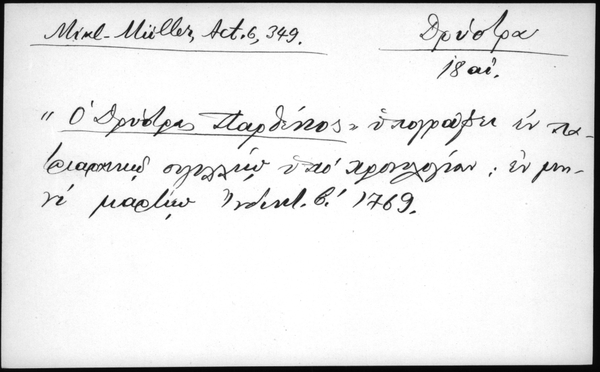 Mikl-Müller, Act. 6, 349.
Δρύστρα
18 αἰ.
"Ὁ Δρύστρας Παρθένιος" ὑπογράφει ἐν πα-
τριαρχικῷ σιγιλλίῳ ὑπὸ χρονολογίαν: ἐν μη-
νὶ μαρτίῳ Ἰνδικτ. β! 1769.